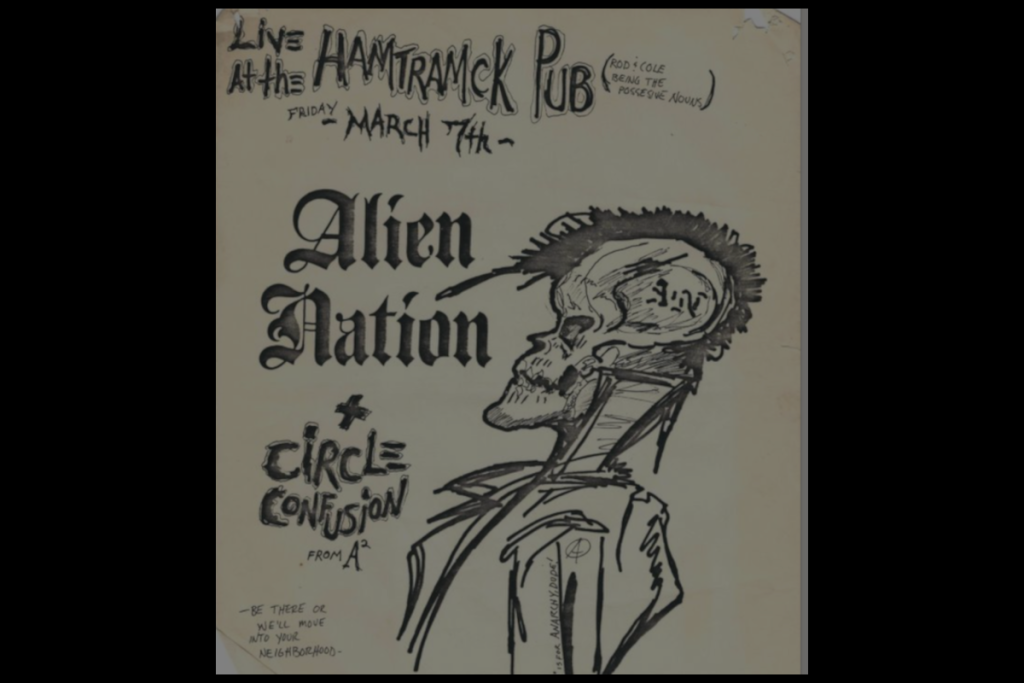 LIVE
At the HAMTRAMCK PUB
(ROD & COLE
BEING THE
POSSESIVE NOUNS)
FRIDAY
- MARCH 7th -
Alien
Nation
A:N
+
CIRCLE
CONFUSION
FROM A²
A
"IS FOR ANARCHY, DUDE!
-BE THERE OR
WE'LL MOVE
INTO YOUR
NEIGHBORHOOD-